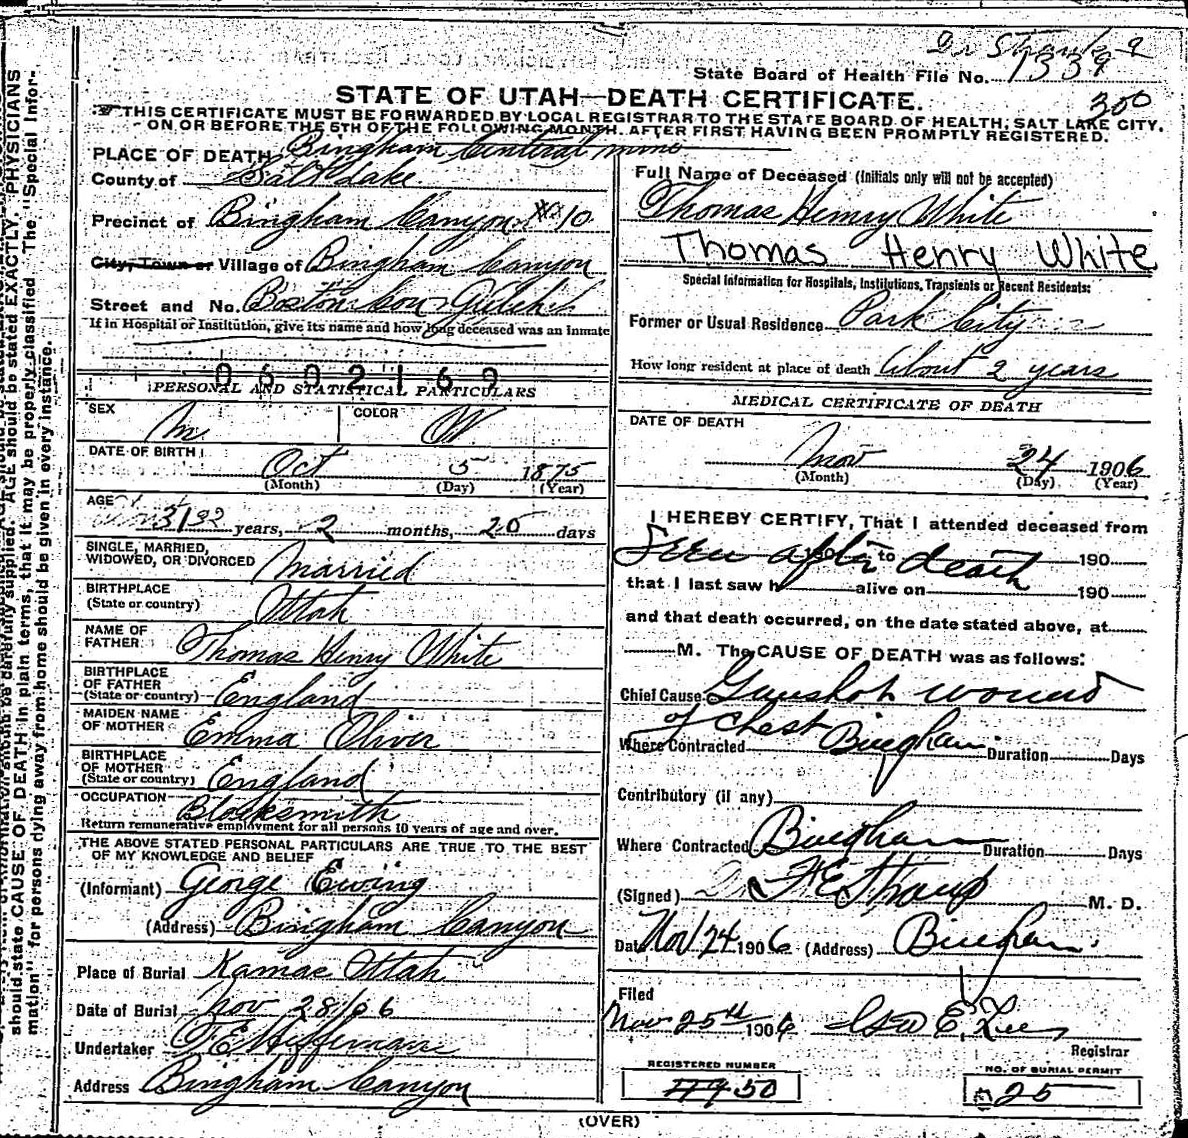 State Board of Health File No. 1339
300
STATE OF UTAH—DEATH CERTIFICATE.
THIS CERTIFICATE MUST BE FORWARDED BY LOCAL REGISTRAR TO THE STATE BOARD OF HEALTH, SALT LAKE CITY,
ON OR BEFORE THE 5TH OF THE FOLLOWING MONTH, AFTER FIRST HAVING BEEN PROMPTLY REGISTERED.
PLACE OF DEATH Bingham Central mine
County of Salt Lake
Precinct of Bingham Canyon 10
City, Town or Village of Bingham Canyon
Street and No. Boston Con
If in Hospital or Institution, give its name and how long deceased was an inmate
0602169
PERSONAL AND STATISTICAL PARTICULARS
SEX M. COLOR W
DATE OF BIRTH Oct 5 1875
(Month) (Day) (Year)
AGE 31 years, 2 months, 20 days
SINGLE, MARRIED, WIDOWED, OR DIVORCED Married
BIRTHPLACE (State or country) Utah
NAME OF FATHER Thomas Henry White
BIRTHPLACE OF FATHER (State or country) England
MAIDEN NAME OF MOTHER Emma Oliver
BIRTHPLACE OF MOTHER (State or country) England
OCCUPATION Blacksmith
Return remunerative employment for all persons 10 years of age and over.
THE ABOVE STATED PERSONAL PARTICULARS ARE TRUE TO THE BEST
OF MY KNOWLEDGE AND BELIEF
(Informant) George Ewing
(Address) Bingham Canyon
Place of Burial Kamas Utah
Date of Burial Nov 28/06
Undertaker F E Heffernan
Address Bingham Canyon
Full Name of Deceased (Initials only will not be accepted)
Thomas Henry White
Thomas Henry White
Special Information for Hospitals, Institutions, Transients or Recent Residents:
Former or Usual Residence Park City
How long resident at place of death About 2 years
MEDICAL CERTIFICATE OF DEATH
DATE OF DEATH
Nov 24 1906
(Month) (Day) (Year)
I HEREBY CERTIFY, That I attended deceased from
Seen after to death 190
that I last saw h alive on 190
and that death occurred, on the date stated above, at
M. The CAUSE OF DEATH was as follows:
Chief Cause Gunshot wound
of chest
Where Contracted Bingham Duration Days
Contributory (if any)
Where Contracted Bingham Duration Days
(Signed) F E Straup M. D.
Date Nov 24 1906 (Address) Bingham.
Filed
Nov 25th 1906 E. Lee
Registrar
REGISTERED NUMBER
50
NO. OF BURIAL PERMIT
25
(OVER)
PHYSICIANS
should state CAUSE OF DEATH in plain terms, that it may be properly classified. The "Special Infor-
mation" for persons dying away from home should be given in every instance.